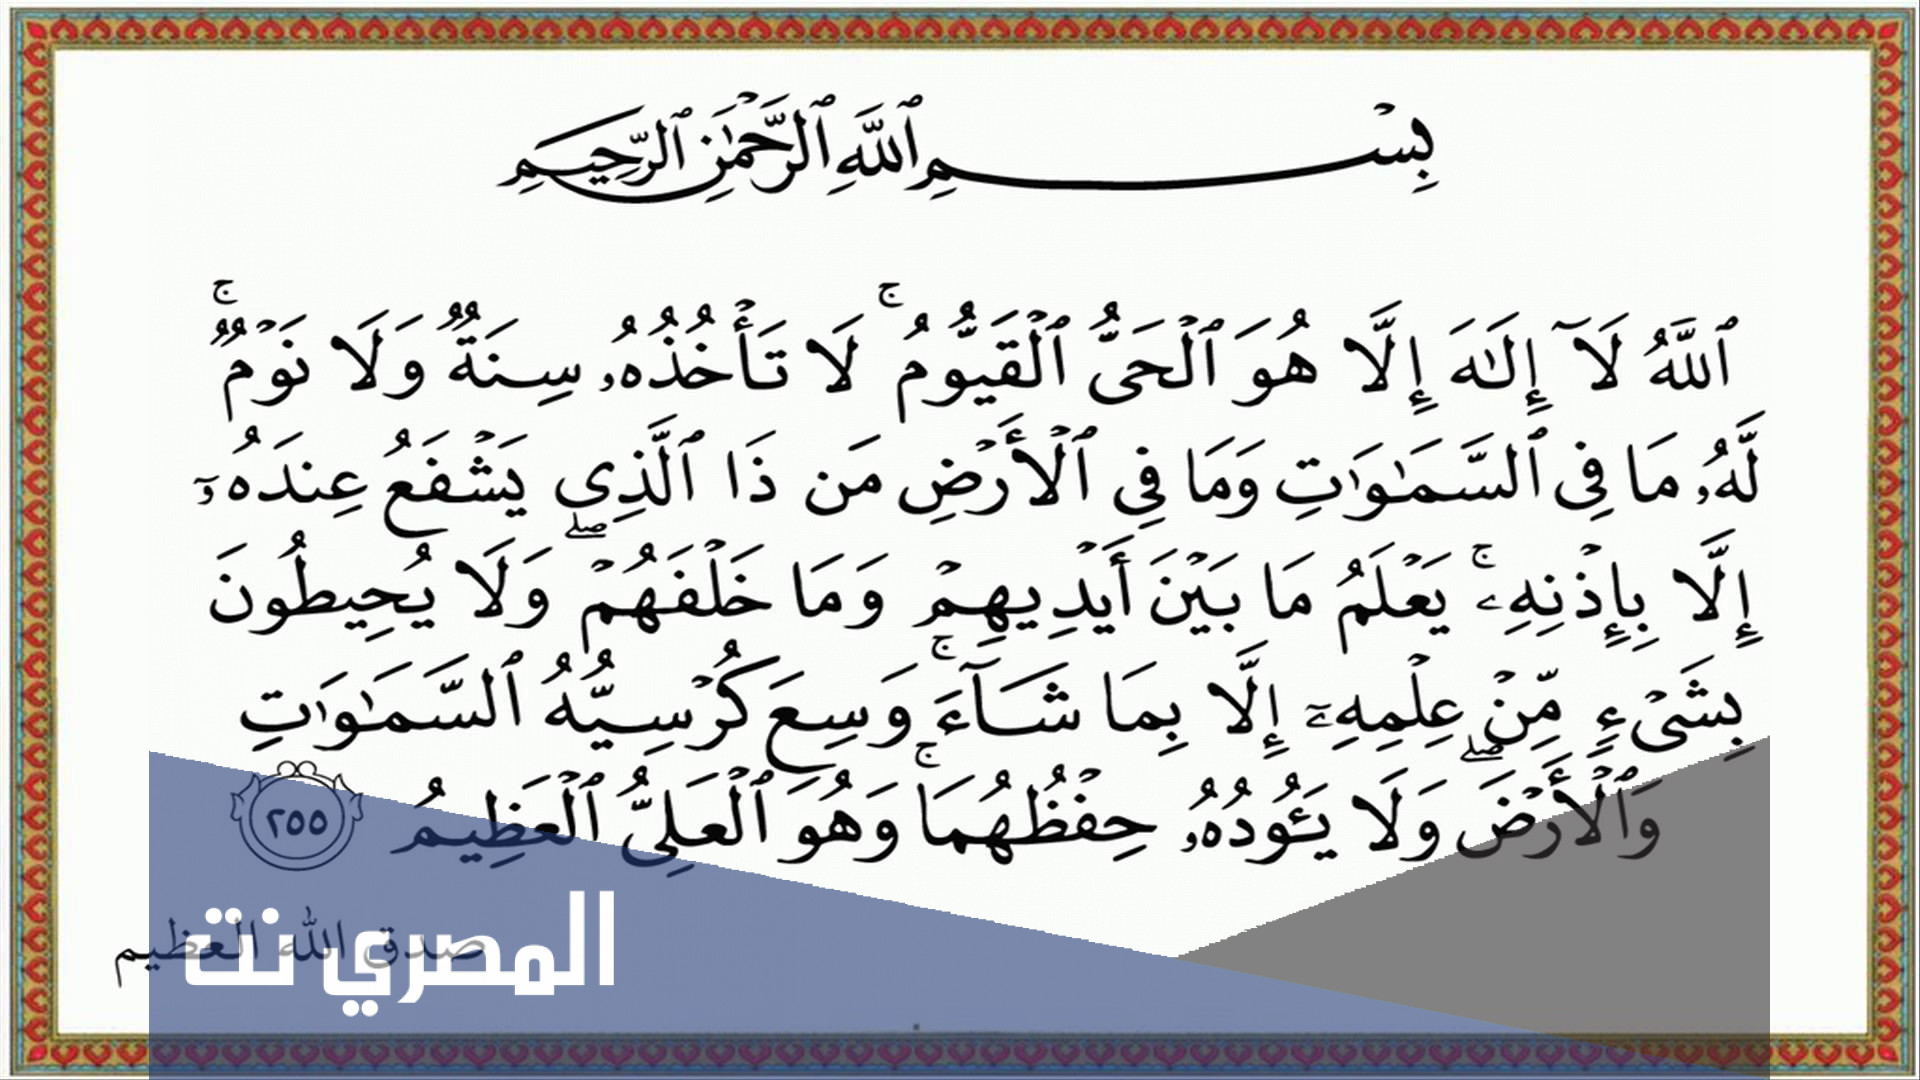 بِسْمِ ٱللَّهِ ٱلرَّحْمَٰنِ ٱلرَّحِيمِ
ٱللَّهُ لَآ إِلَٰهَ إِلَّا هُوَ ٱلْحَىُّ ٱلْقَيُّومُ ۚ لَا تَأْخُذُهُۥ سِنَةٌ وَلَا نَوْمٌ ۚ
لَّهُۥ مَا فِى ٱلسَّمَٰوَٰتِ وَمَا فِى ٱلْأَرْضِ مَن ذَا ٱلَّذِى يَشْفَعُ عِندَهُۥٓ
إِلَّا بِإِذْنِهِۦ ۚ يَعْلَمُ مَا بَيْنَ أَيْدِيهِمْ وَمَا خَلْفَهُمْ ۖ وَلَا يُحِيطُونَ
بِشَىْءٍ مِّنْ عِلْمِهِۦٓ إِلَّا بِمَا شَآءَ ۚ وَسِعَ كُرْسِيُّهُ ٱلسَّمَٰوَٰتِ
وَٱلْأَرْضَ ۖ وَلَا يَـُٔودُهُۥ حِفْظُهُمَا ۚ وَهُوَ ٱلْعَلِىُّ ٱلْعَظِيمُ ٢٥٥
صدق الله العظيم
المصري نت